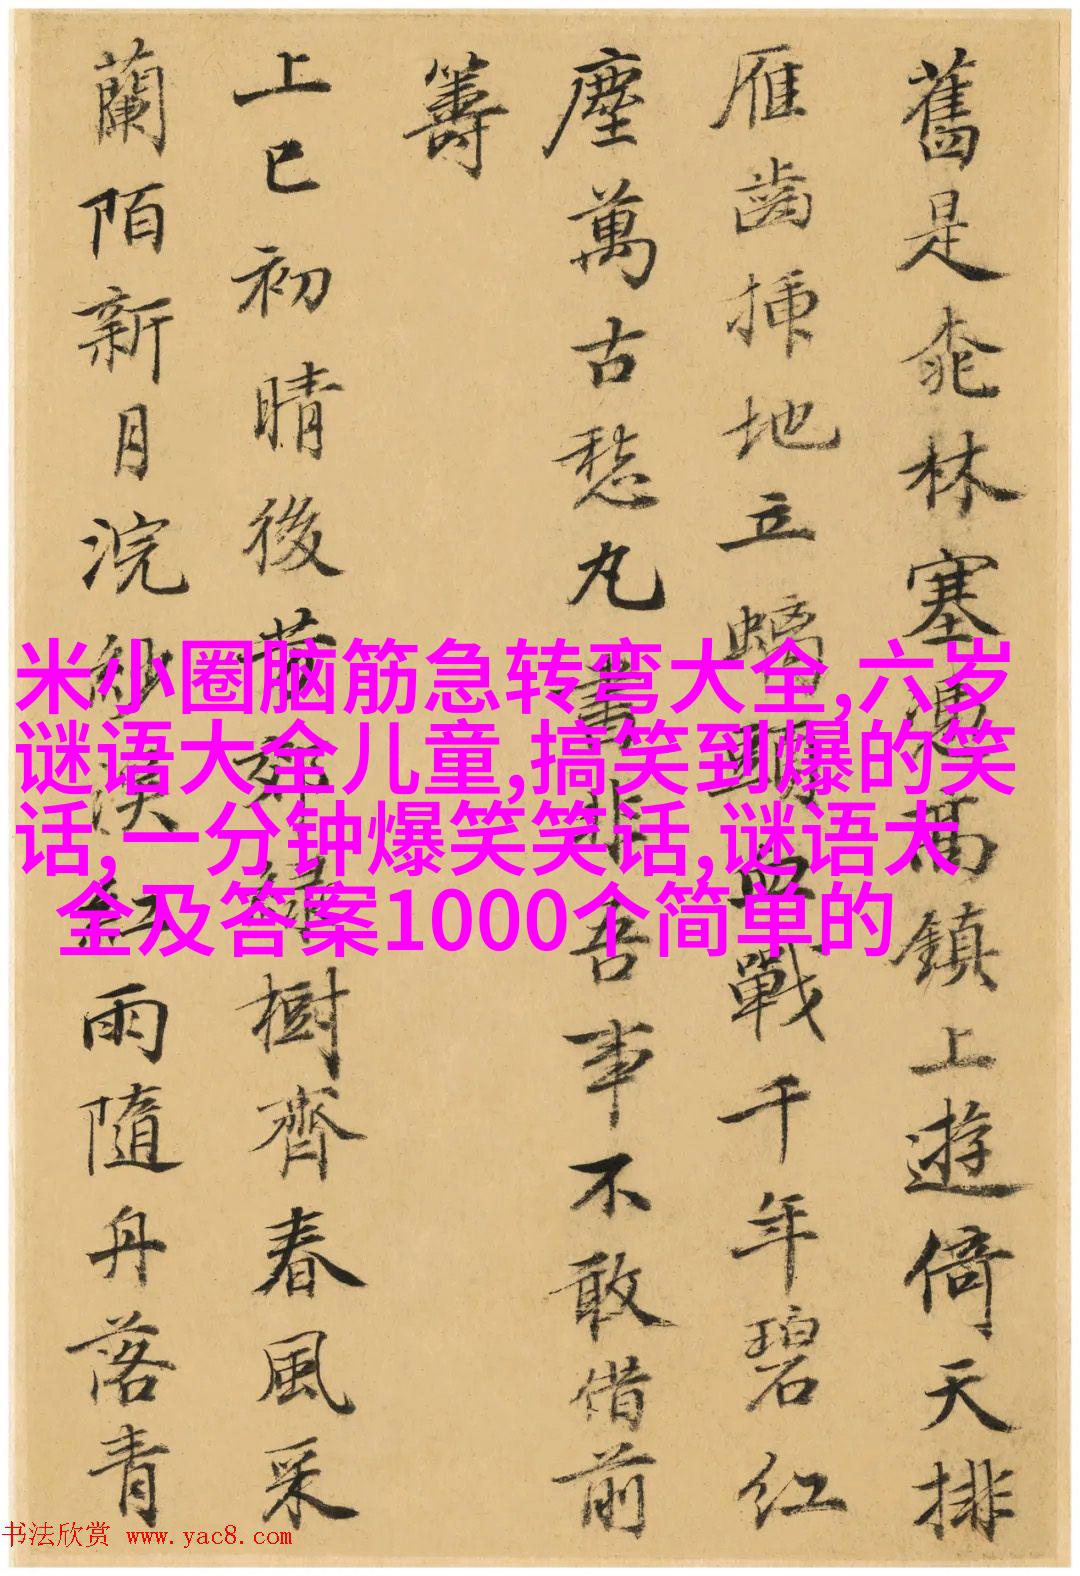 舊是桃林塞鎮上遊倚天排
雁齒插地立螭頭血戰千年碧紅
塵萬古愁丸書非吾事不敢借前
籌
上巳初晴後芳郊綠樹齊春風采
蘭陌新月浣紗溪紅雨隨丹落青
米小圈脑筋急转弯大全,六岁
谜语大全儿童,搞笑到爆的笑
话,一分钟爆笑笑话,谜语大
全及答案1000个简单的
书法欣赏 www.yac8.com